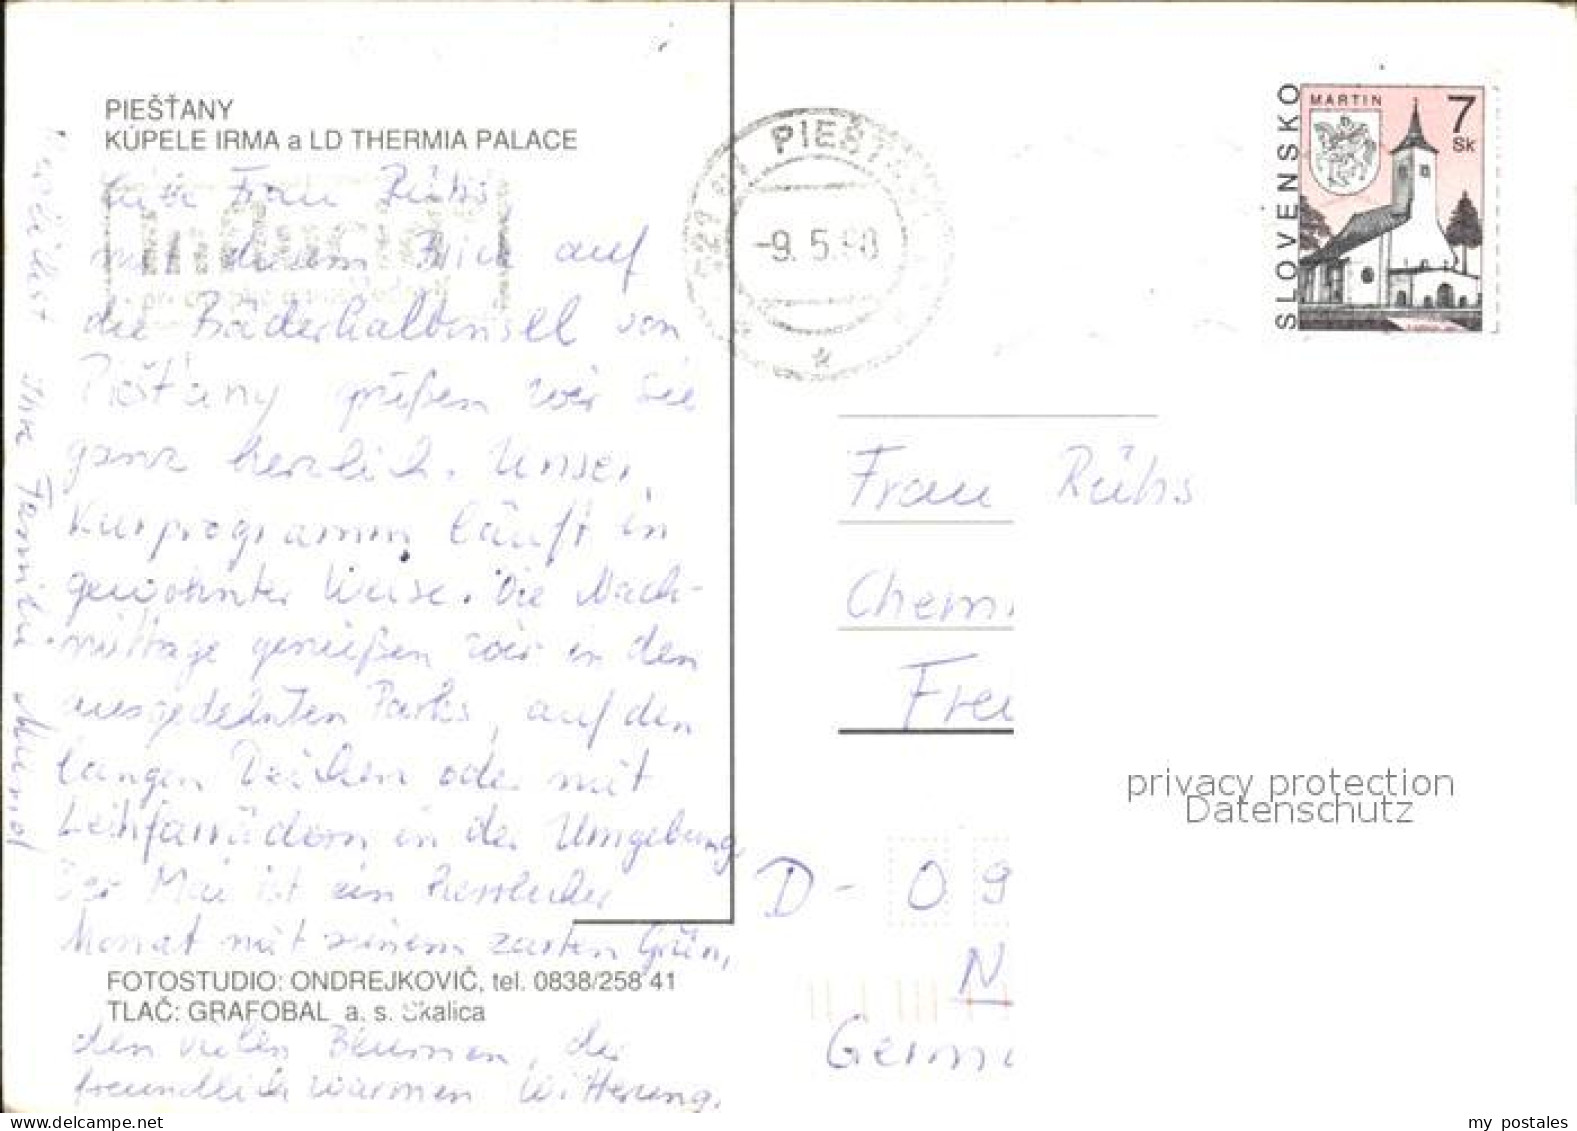 PIEŠŤANY
KÚPELE IRMA a LD THERMIA PALACE
Frau Rühs,
mit diesem Blick auf
die Bäderhalbinsel von
Piešťany grüßen wir Sie
ganz herzlich. Unser
Kurprogramm läuft in
gewohnter Weise. Die Nach-
mittage genießen wir in den
ausgedehnten Parks, auf den
langen Deichen oder mit
Leihfahrrädern in der Umgebung
Der Mai ist ein herrlicher
Monat mit seinem zarten Grün,
FOTOSTUDIO: ONDREJKOVIČ, tel. 0838/258 41
TLAČ: GRAFOBAL a. s. Skalica
den vielen Blumen, der
freundlich warmen Witterung.
Ihre Familie
PIEŠŤANY
-9. 5.
SLOVENSKO
MARTIN
7
Sk
Frau Rühs
Chemn
Frei
D- 09
N
Germ
privacy protection
Datenschutz
my postales